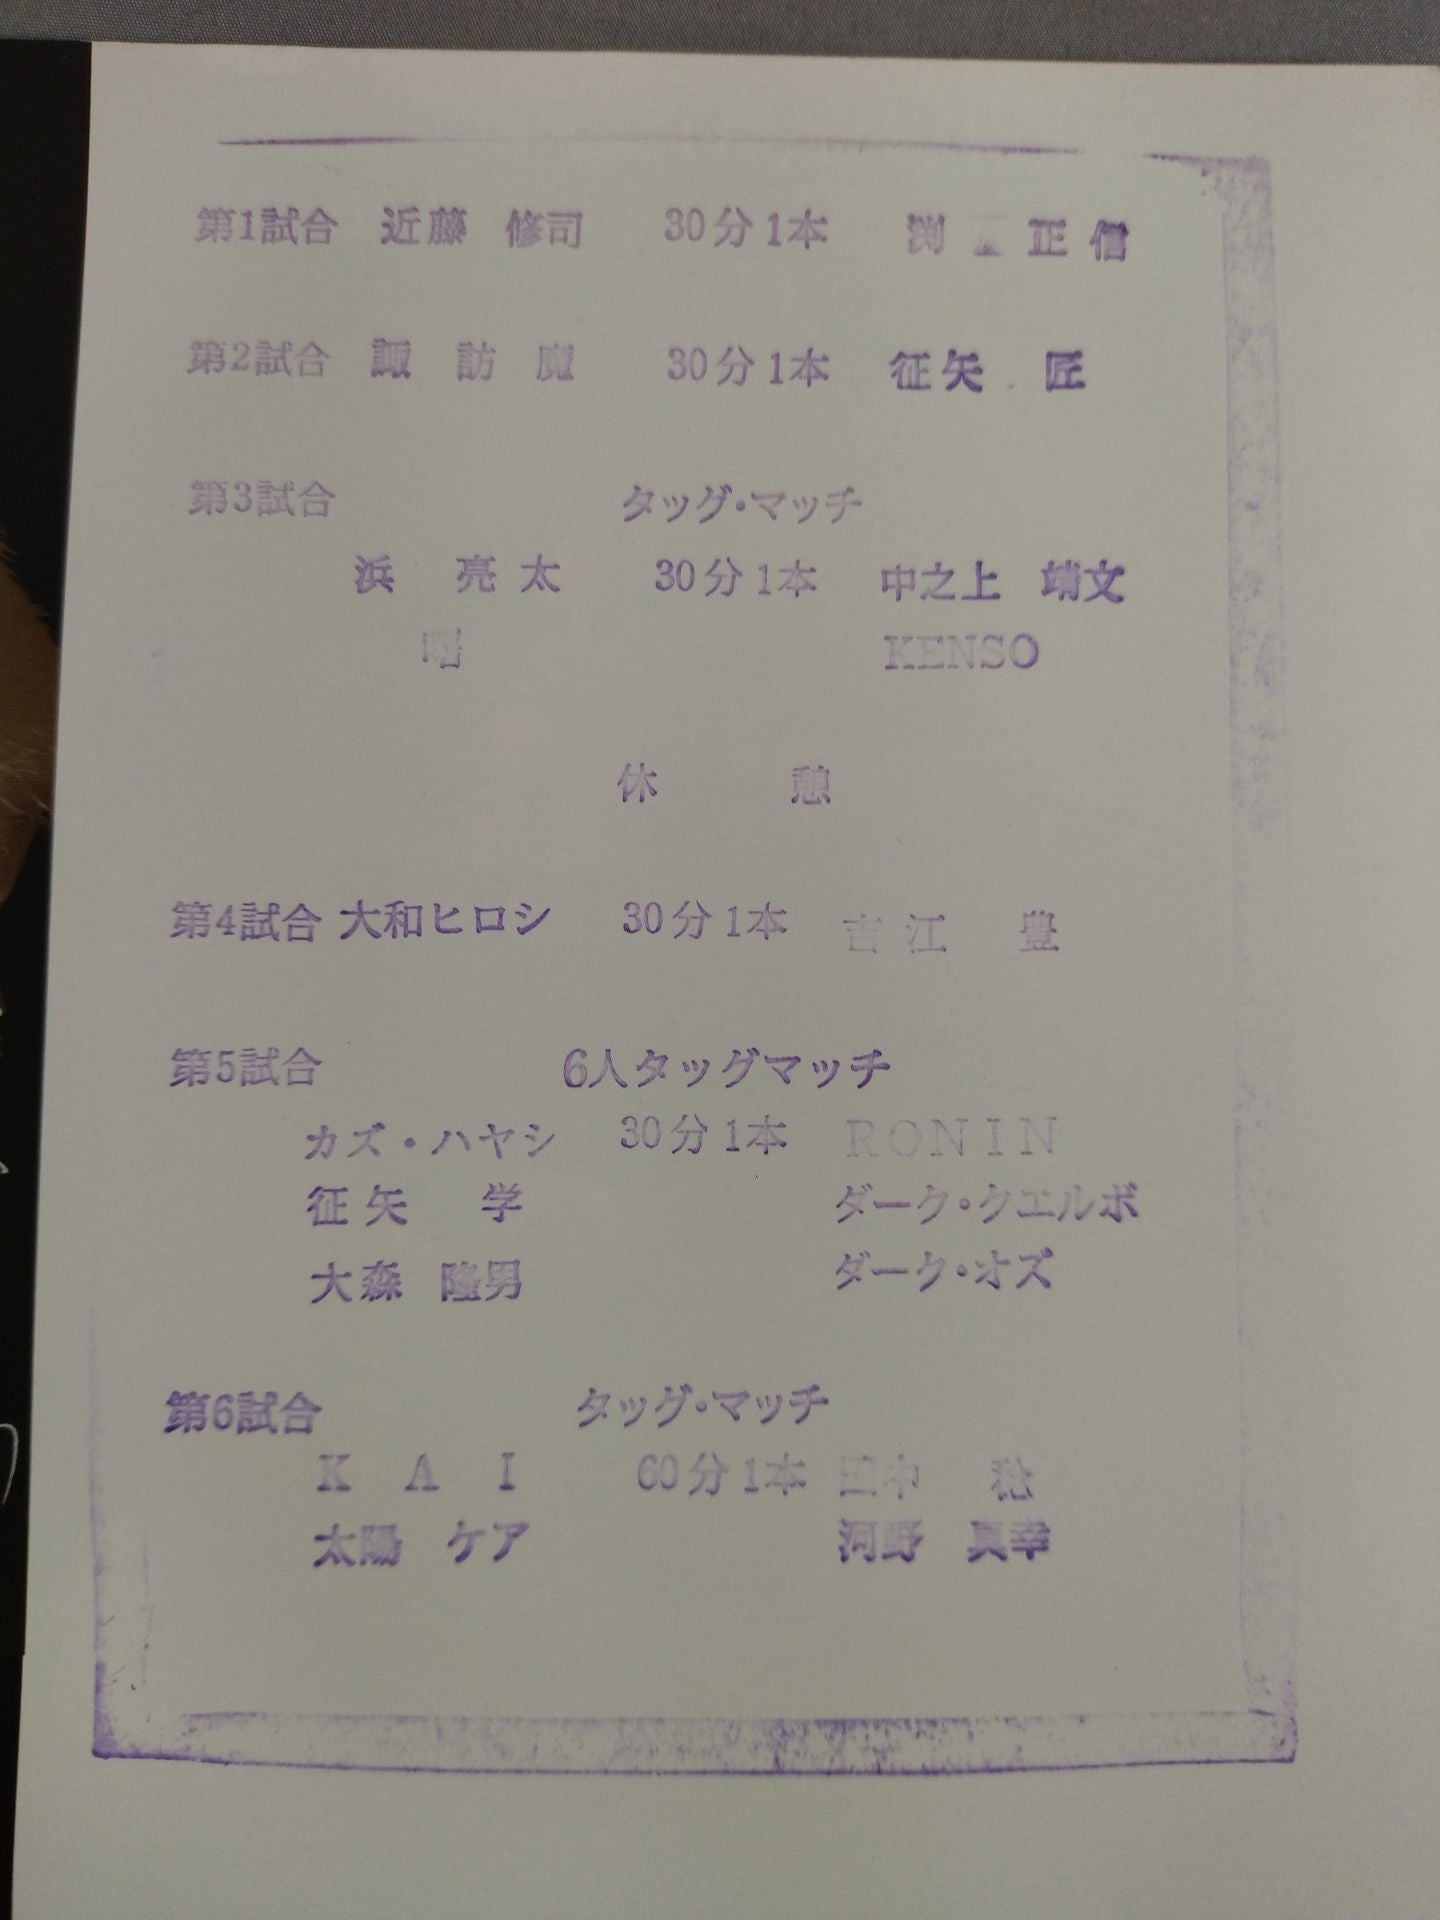 第1試合 近藤 修司 30分1本 渕 正信
第2試合 諏訪魔 30分1本 征矢 匠
第3試合 タッグ・マッチ
浜 亮太 30分1本 中之上 靖文
曙 KENSO
休憩
第4試合 大和ヒロシ 30分1本 吉江 豊
第5試合 6人タッグマッチ
カズ・ハヤシ 30分1本 RONIN
征矢 学 ダーク・クエルボ
大森 隆男 ダーク・オズ
第6試合 タッグ・マッチ
KAI 60分1本 田中 稔
太陽 ケア 河野 真幸